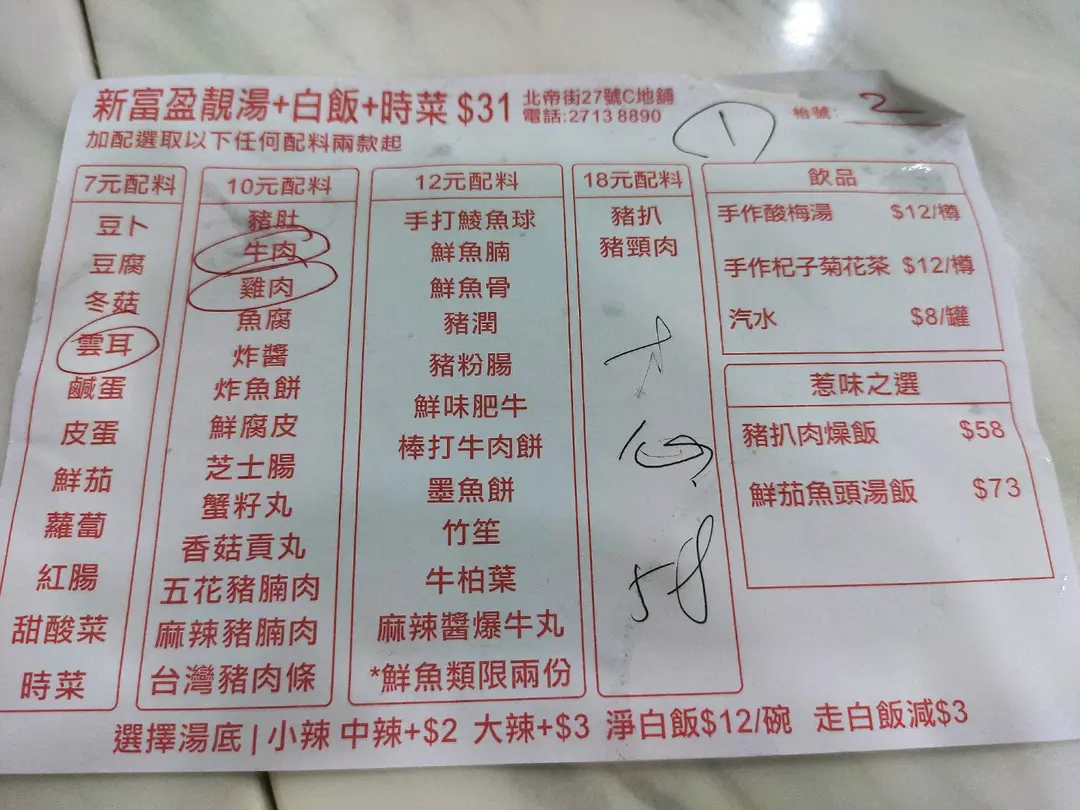 新富盈靚湯+白飯+時菜 $31
北帝街27號C地舖
電話:2713 8890
加配選取以下任何配料兩款起
1
枱號: 2
7元配料
豆卜
豆腐
冬菇
雲耳
鹹蛋
皮蛋
鮮茄
蘿蔔
紅腸
甜酸菜
時菜
10元配料
豬肚
牛肉
雞肉
魚腐
炸醬
炸魚餅
鮮腐皮
芝士腸
蟹籽丸
香菇貢丸
五花豬腩肉
麻辣豬腩肉
台灣豬肉條
12元配料
手打鯪魚球
鮮魚腩
鮮魚骨
豬潤
豬粉腸
鮮味肥牛
棒打牛肉餅
墨魚餅
竹笙
牛柏葉
麻辣醬爆牛丸
*鮮魚類限兩份
18元配料
豬扒
豬頸肉
58
飲品
手作酸梅湯 $12/樽
手作杞子菊花茶 $12/樽
汽水 $8/罐
惹味之選
豬扒肉燥飯 $58
鮮茄魚頭湯飯 $73
選擇湯底 | 小辣 中辣+$2 大辣+$3 淨白飯$12/碗 走白飯減$3